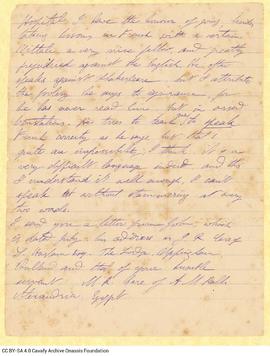 Hospitals. I have the honour of going
taking lessons in French with a certain
a very nice fellow, and greatly
prejudiced against the English. He often
speaks against Shakespeare - but I attribute
this he says to ignorance, for
he has never read line but in
translation. He tries to teach me to speak
French correctly as he says but that's
quite an impossibility I think. It's a
very difficult language indeed and tho
I understand it well enough, I can't
speak it without stammering at every
two words.
I send you a letter from John, which
is dated July - his address is
The Lodge
England and that of your humble
servant
Alexandria Egypt
CC BY-SA 4.0 Cavafy Archive Onassis Foundation